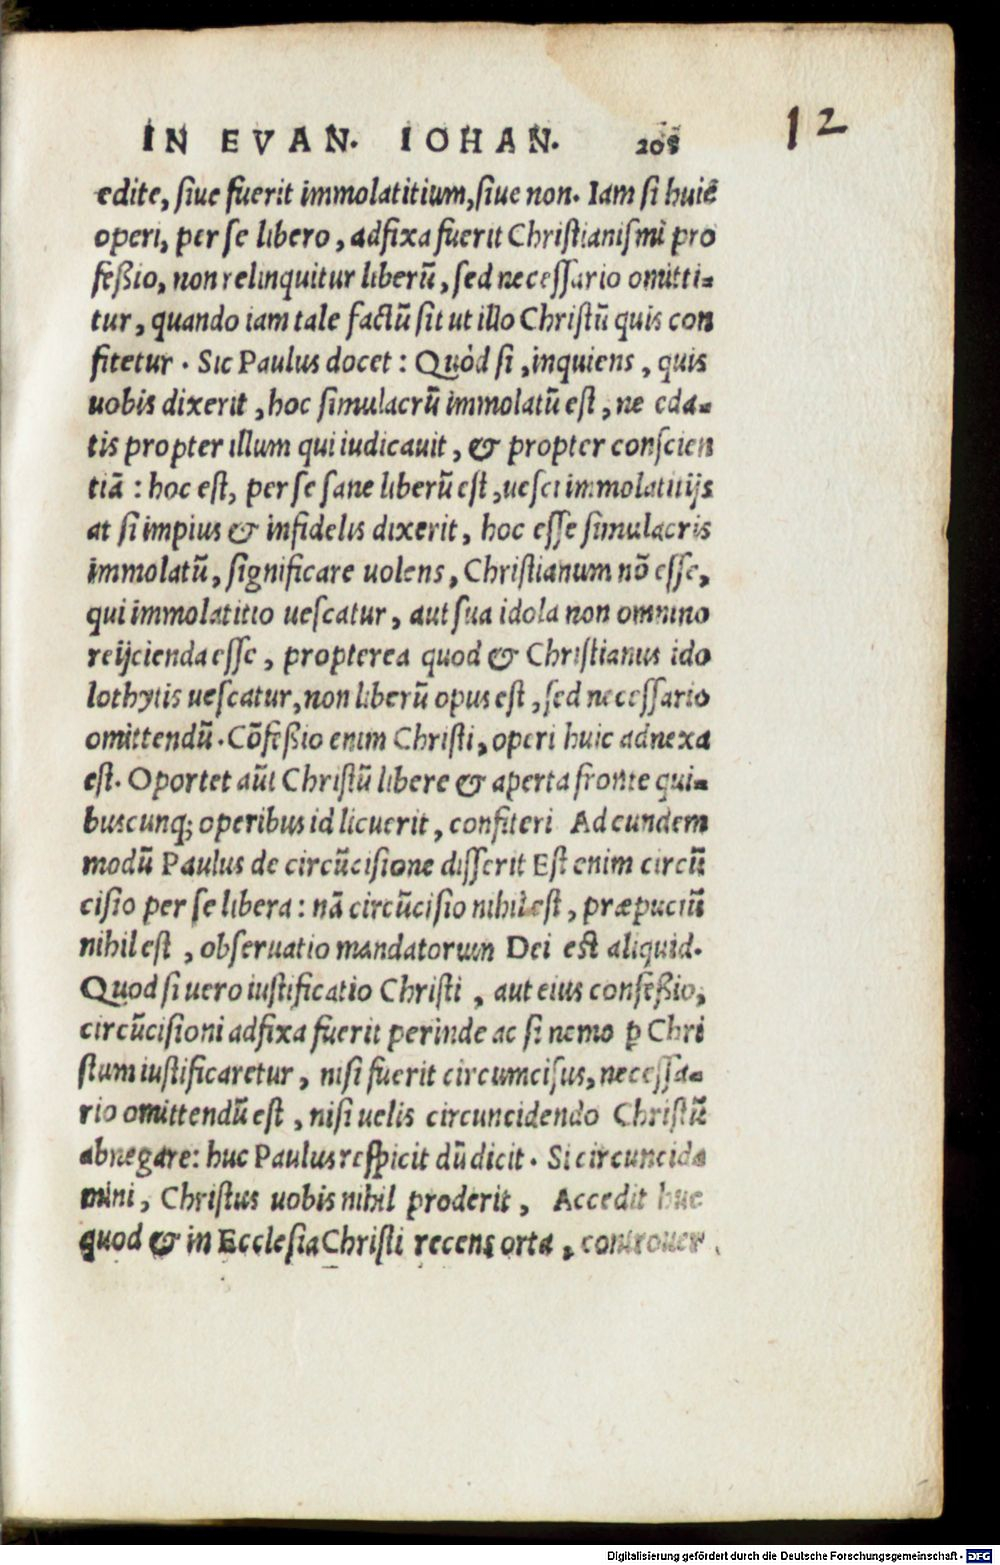 IN EVAN. IOHAN. 208
12
edite, siue fuerit immolatitium, siue non. Iam si huic
operi, per se libero, adfixa fuerit Christianismi pro
feßio, non relinquitur liberū, sed necessario omitti-
tur, quando iam tale factū sit ut illo Christū quis con
fitetur. Sic Paulus docet: Quòd si, inquiens, quis
uobis dixerit, hoc simulacrū immolatū est, ne eda-
tis propter illum qui iudicauit, & propter conscien
tiā: hoc est, per se sane liberū est, uesci immolatitijs
at si impius & infidelis dixerit, hoc esse simulacris
immolatū, significare uolens, Christianum nō esse,
qui immolatitio uescatur, aut sua idola non omnino
reijcienda esse, propterea quod & Christianus ido
lothytis uescatur, non liberū opus est, sed necessario
omittendū. Cōfeßio enim Christi, operi huic adnexa
est. Oportet aūt Christū libere & aperta fronte qui-
buscunq; operibus id licuerit, confiteri Ad eundem
modū Paulus de circūcisione disserit Est enim circū
cisio per se libera: nā circūcisio nihil est, præputiū
nihil est, obseruatio mandatorum Dei est aliquid.
Quod si uero iustificatio Christi, aut eius confeßio,
circūcisioni adfixa fuerit perinde ac si nemo ꝑ Chri
stum iustificaretur, nisi fuerit circumcisus, necessa-
rio omittendū est, nisi uelis circuncidendo Christū
abnegare: huc Paulus respicit dū dicit. Si circuncida
mini, Christus uobis nihil proderit, Accedit huc
quod & in Ecclesia Christi recens orta, controuer
Digitalisierung gefördert durch die Deutsche Forschungsgemeinschaft - DFG